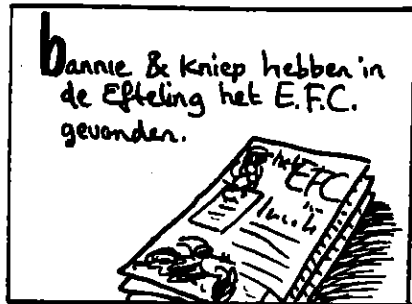 bannie & Kniep hebben in
de Efteling het E.F.C.
gevonden.
het
EFC
in